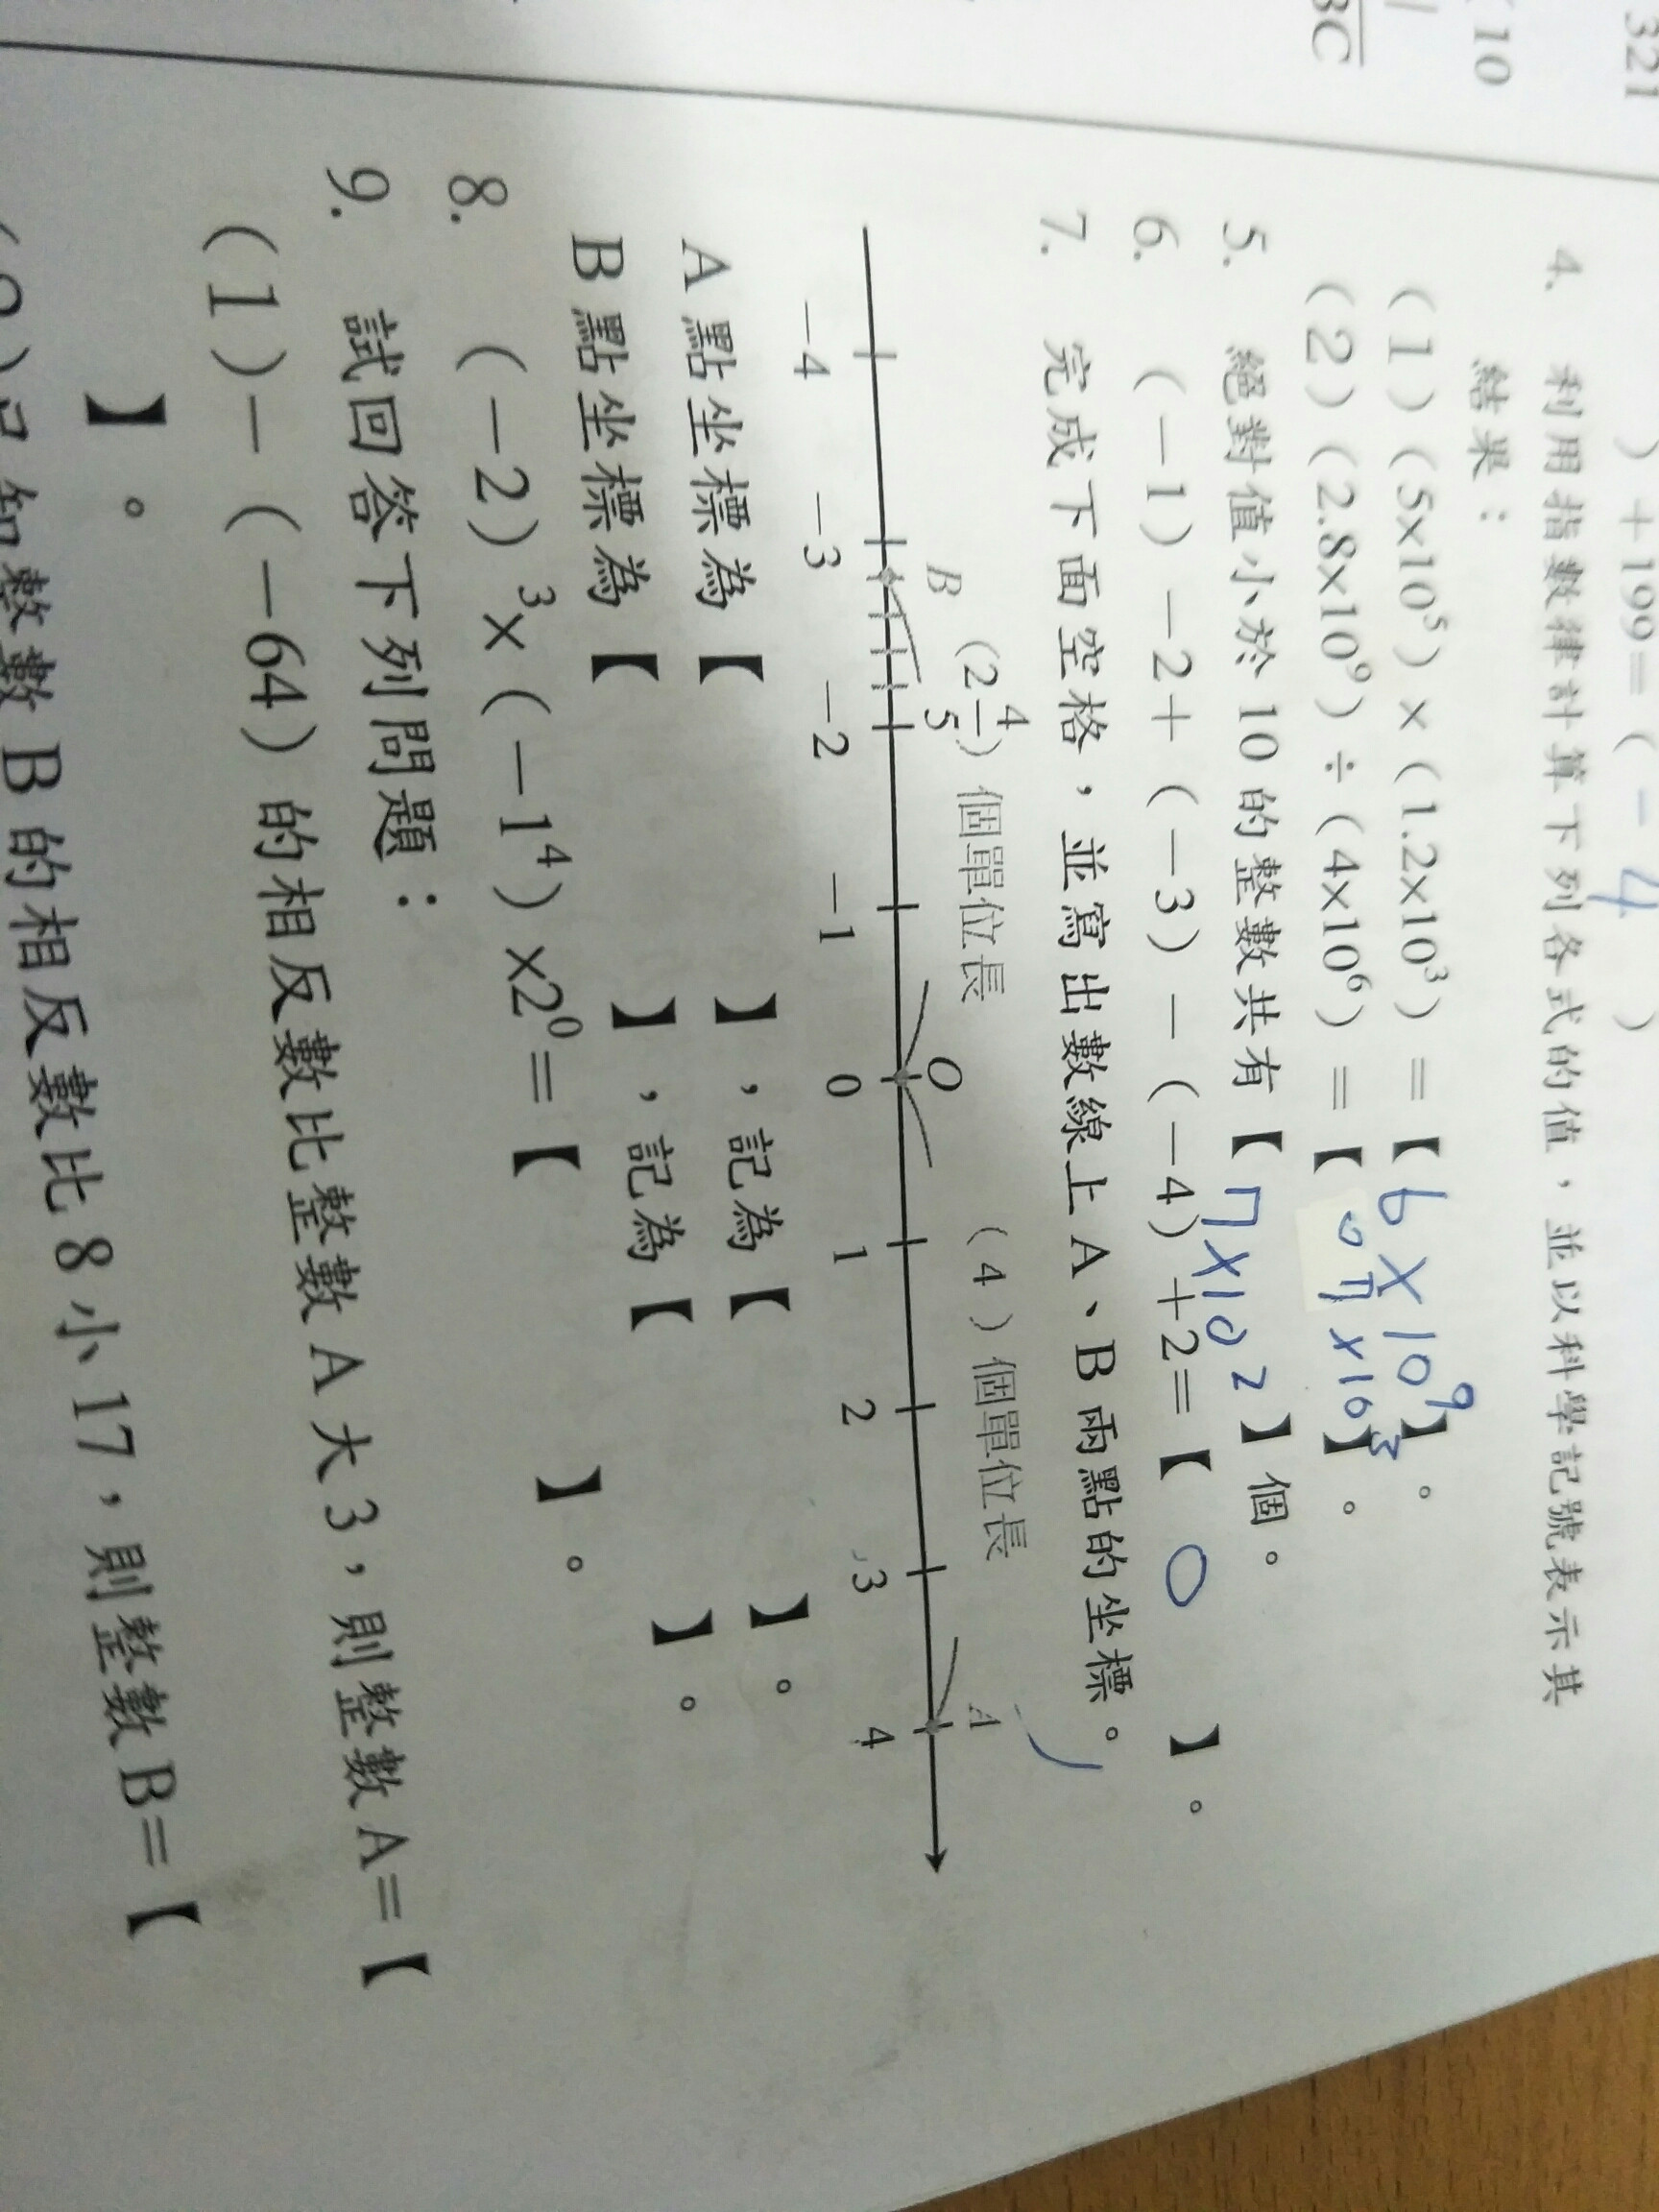 321
10
BC
)+199=( - 4 )
4. 利用指數律計算下列各式的值,並以科學記號表示其
結果:
(1)(5×10⁵)×(1.2×10³)=【6×10⁹】。
(2)(2.8×10⁹)÷(4×10⁶)=【0.7×10³】。
5. 絕對值小於 10 的整數共有【7×10²】個。
6. (-1)-2+(-3)-(-4)+2=【 0 】。
7. 完成下面空格,並寫出數線上 A、B 兩點的坐標。
(2 4/5) 個單位長 (4) 個單位長
B O A
-4 -3 -2 -1 0 1 2 3 4
A 點坐標為【 】,記為【 】。
B 點坐標為【 】,記為【 】。
8. (-2)³×(-1⁴)×2⁰=【 】。
9. 試回答下列問題:
(1)-(-64)的相反數比整數 A 大 3,則整數 A=【
】。
知整數 B 的相反數比 8 小 17,則整數 B=【